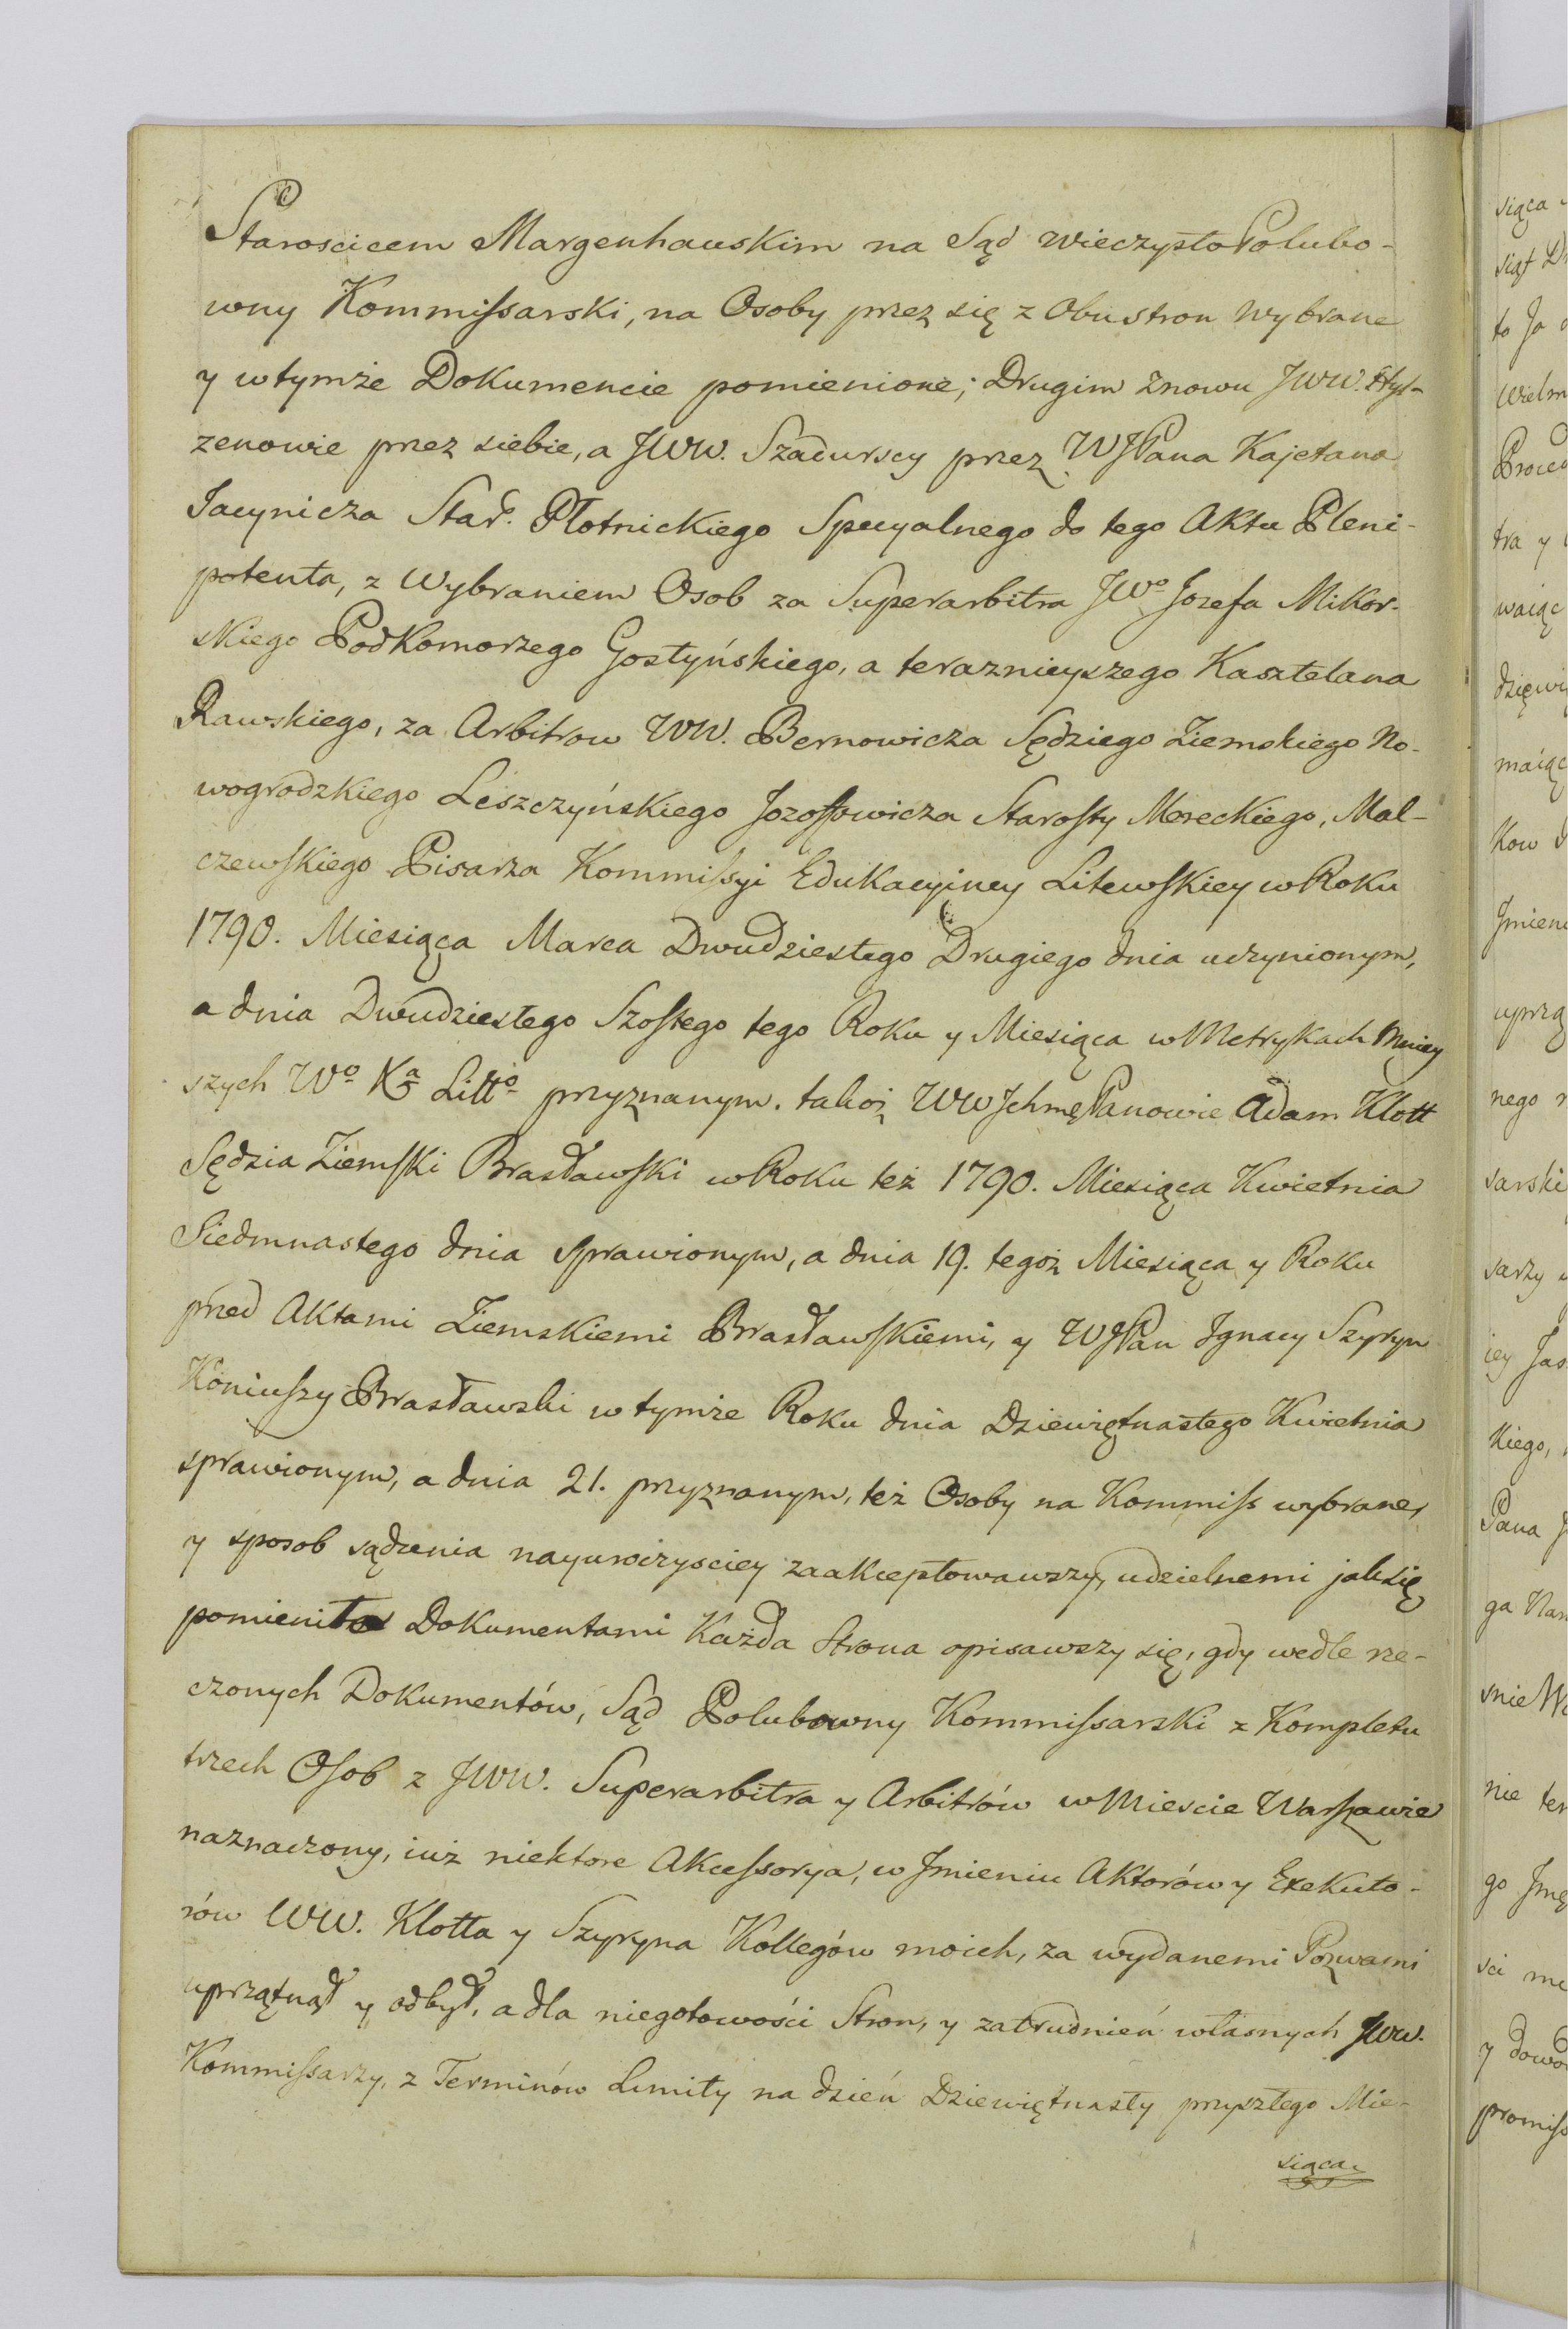 Staroscicem Margenhauskim na Sąd wieczysto Polubo-
wny Kommissarski, na Osoby przez się z Obustron Wybrane
y wtymże Dokumencie pomienione; Drugim znowu JWW. Hyl-
zenowie przez siebie, a JWW. Szadurscy przez WJPana Kajetana
Jacynicza Star. Płotnickiego Specyalnego do tego Aktu Pleni-
potenta, z Wybraniem Osob za Superarbitra JWo Jozefa Mikor-
skiego Podkomorzego Gostyńskiego, a teraznieyszego Kasztelana
Rawskiego, za Arbitrow WW. Bernowicza Sędziego Ziemskiego No-
wogrodzkiego Leszczyńskiego Jozoffowicza Starosty Mereckiego, Mal-
czewskiego Pisarza Kommissyi Edukacyiney Litewskiey w Roku
1790. Miesiąca Marca Dwudziestego Drugiego dnia uczynionym,
a dnia Dwudziestego Szostego tego Roku y Miesiąca w Metrykach Mniey
szych Wo Ka Litto przyznanym. takoż WW Jchmę Panowie Adam Klott
Sędzia Ziemski Brasławski w Roku też 1790. Miesiąca Kwietnia
Siedmnastego dnia sprawionym, a dnia 19. tegoż Miesiąca y Roku
przed Aktami Ziemskiemi Brasławskiemi, y WJPan Jgnacy Szyryn
Koniuszy Brasławski w tymże Roku dnia Dziewiętnastego Kwietnia
sprawionym, a dnia 21. przyznanym, też Osoby na Kommiss wybrane,
y sposob sądzenia nayuroczysciey zaakceptowawszy, udzielnemi jak się
pomieniło Dokumentami Każda Strona opisawszy się, gdy wedle rze-
czonych Dokumentów, Sąd Polubowny Kommissarski z Kompletu
trzech Osob z JWW. Superarbitra y Arbitrów w Miescie Warszawie
naznaczony, iuż niektore Akcessorya, w Jmieniu Aktorów y Exekuto-
rów WW. Klotta y Szyryna Kollegów moich, za wydanemi Pozwami
uprzątnął y odbył, a dla niegotowości Stron, y zatrudnień własnych JWW.
Kommissarzy, z Terminów Limity na dzień Dziewiętnasty przyszłego Mie-
siąca